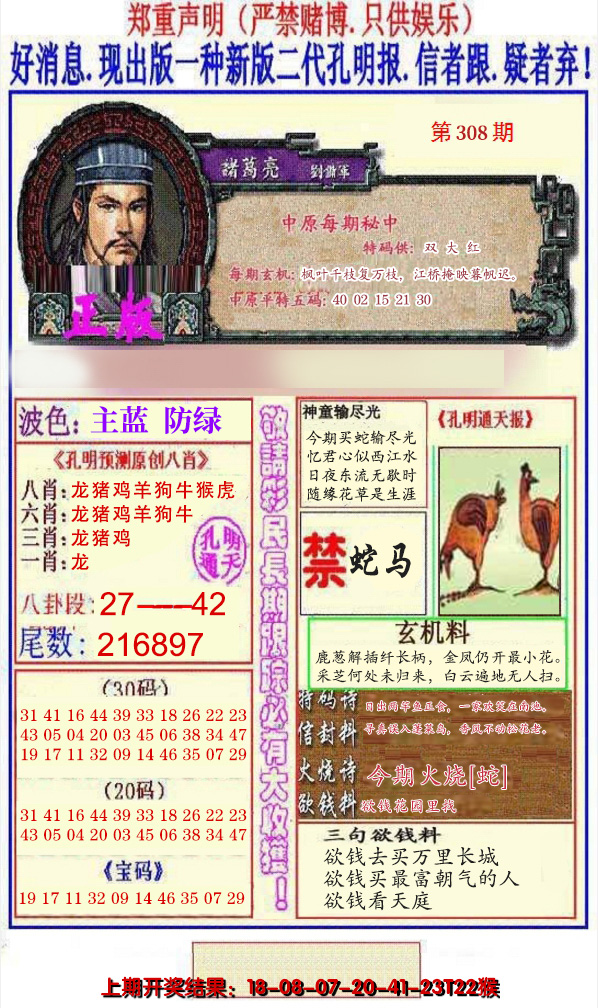 郑重声明（严禁赌博.只供娱乐）
好消息.现出版一种新版二代孔明报.信者跟.疑者弃!
第308期
諸葛亮 劉備軍
中原每期秘中
特码供: 双 大 红
每期玄机: 枫叶千枝复万枝，江桥掩映暮帆迟。
中原平特五码: 40 02 15 21 30
正版
波色: 主蓝 防绿
《孔明预测原创八肖》
八肖: 龙猪鸡羊狗牛猴虎
六肖: 龙猪鸡羊狗牛
三肖: 龙猪鸡
一肖: 龙
孔明通天
八卦段: 27——42
尾数: 216897
（30码）
31 41 16 44 39 33 18 26 22 23
43 05 04 20 03 45 06 38 34 47
19 17 11 32 09 14 46 35 07 29
（20码）
31 41 16 44 39 33 18 26 22 23
43 05 04 20 03 45 06 38 34 47
《宝码》
19 17 11 32 09 14 46 35 07 29
敬請彩民長期跟踪必有大收獲！
神童输尽光
今期买蛇输尽光
忆君心似西江水
日夜东流无歇时
随缘花草是生涯
《孔明通天报》
禁 蛇马
玄机料
鹿葱解插纤长柄，金凤仍开最小花。
采芝何处未归来，白云遍地无人扫。
特码诗 日出两竿鱼正食，一家欢笑在南池。
信封料 寻真误入蓬莱岛，香风不动松花老。
火烧诗 今期火烧[蛇]
欲钱料 欲钱花园里找
三句欲钱料
欲钱去买万里长城
欲钱买最富朝气的人
欲钱看天庭
上期开奖结果：18-08-07-20-41-23T22猴